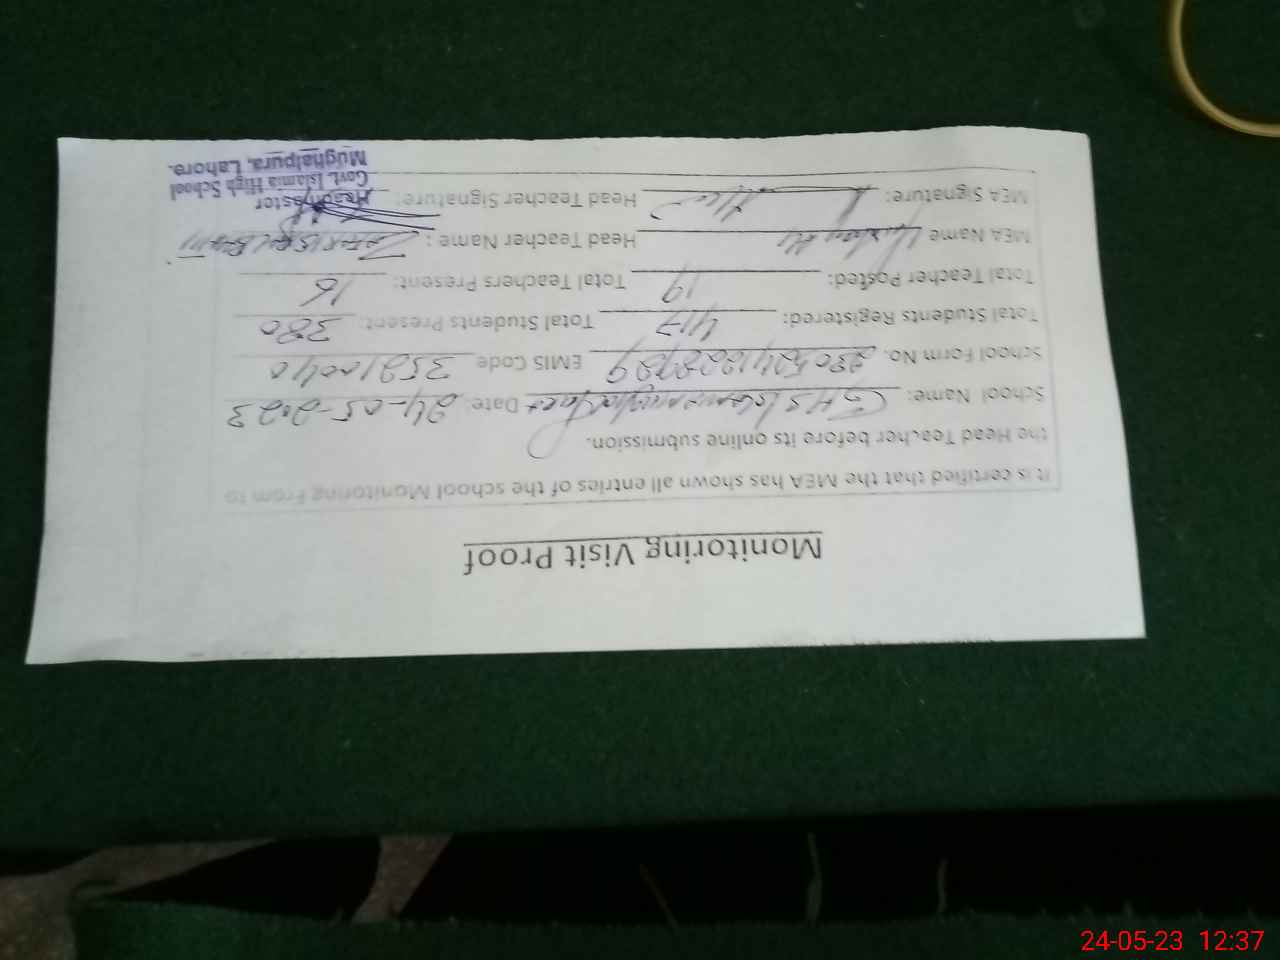 Monitoring Visit Proof
It is certified that the MEA has shown all entries of the school Monitoring From to
the Head Teacher before its online submission.
School Name: GHS Date: 24-05-2023
School Form No. EMIS Code 35210040
Total Students Registered: 417 Total Students Present: 380
Total Teacher Posted: 19 Total Teachers Present: 16
MEA Name Head Teacher Name:
MEA Signature: Head Teacher Signature:
Headmaster
Govt. Islamia High School
Mughalpura, Lahore.
24-05-23 12:37